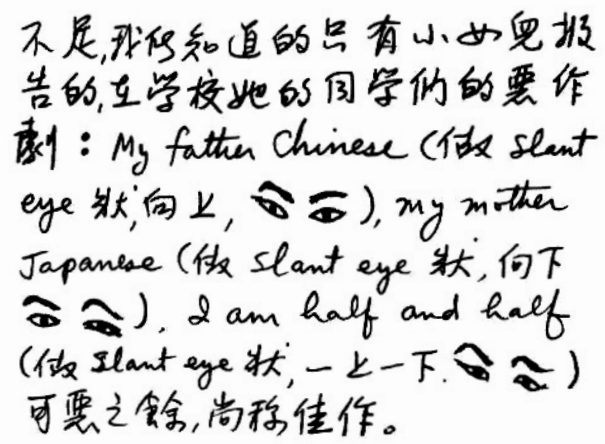 不是,我所知道的只有小女兒報
告的,在学校她的同学们的惡作
劇：My father Chinese (做 slant
eye 狀,向上, ), my mother
Japanese (做 slant eye 狀, 向下
), I am half and half
(做 slant eye 狀, 一上一下. )
可惡之餘,尚称佳作。